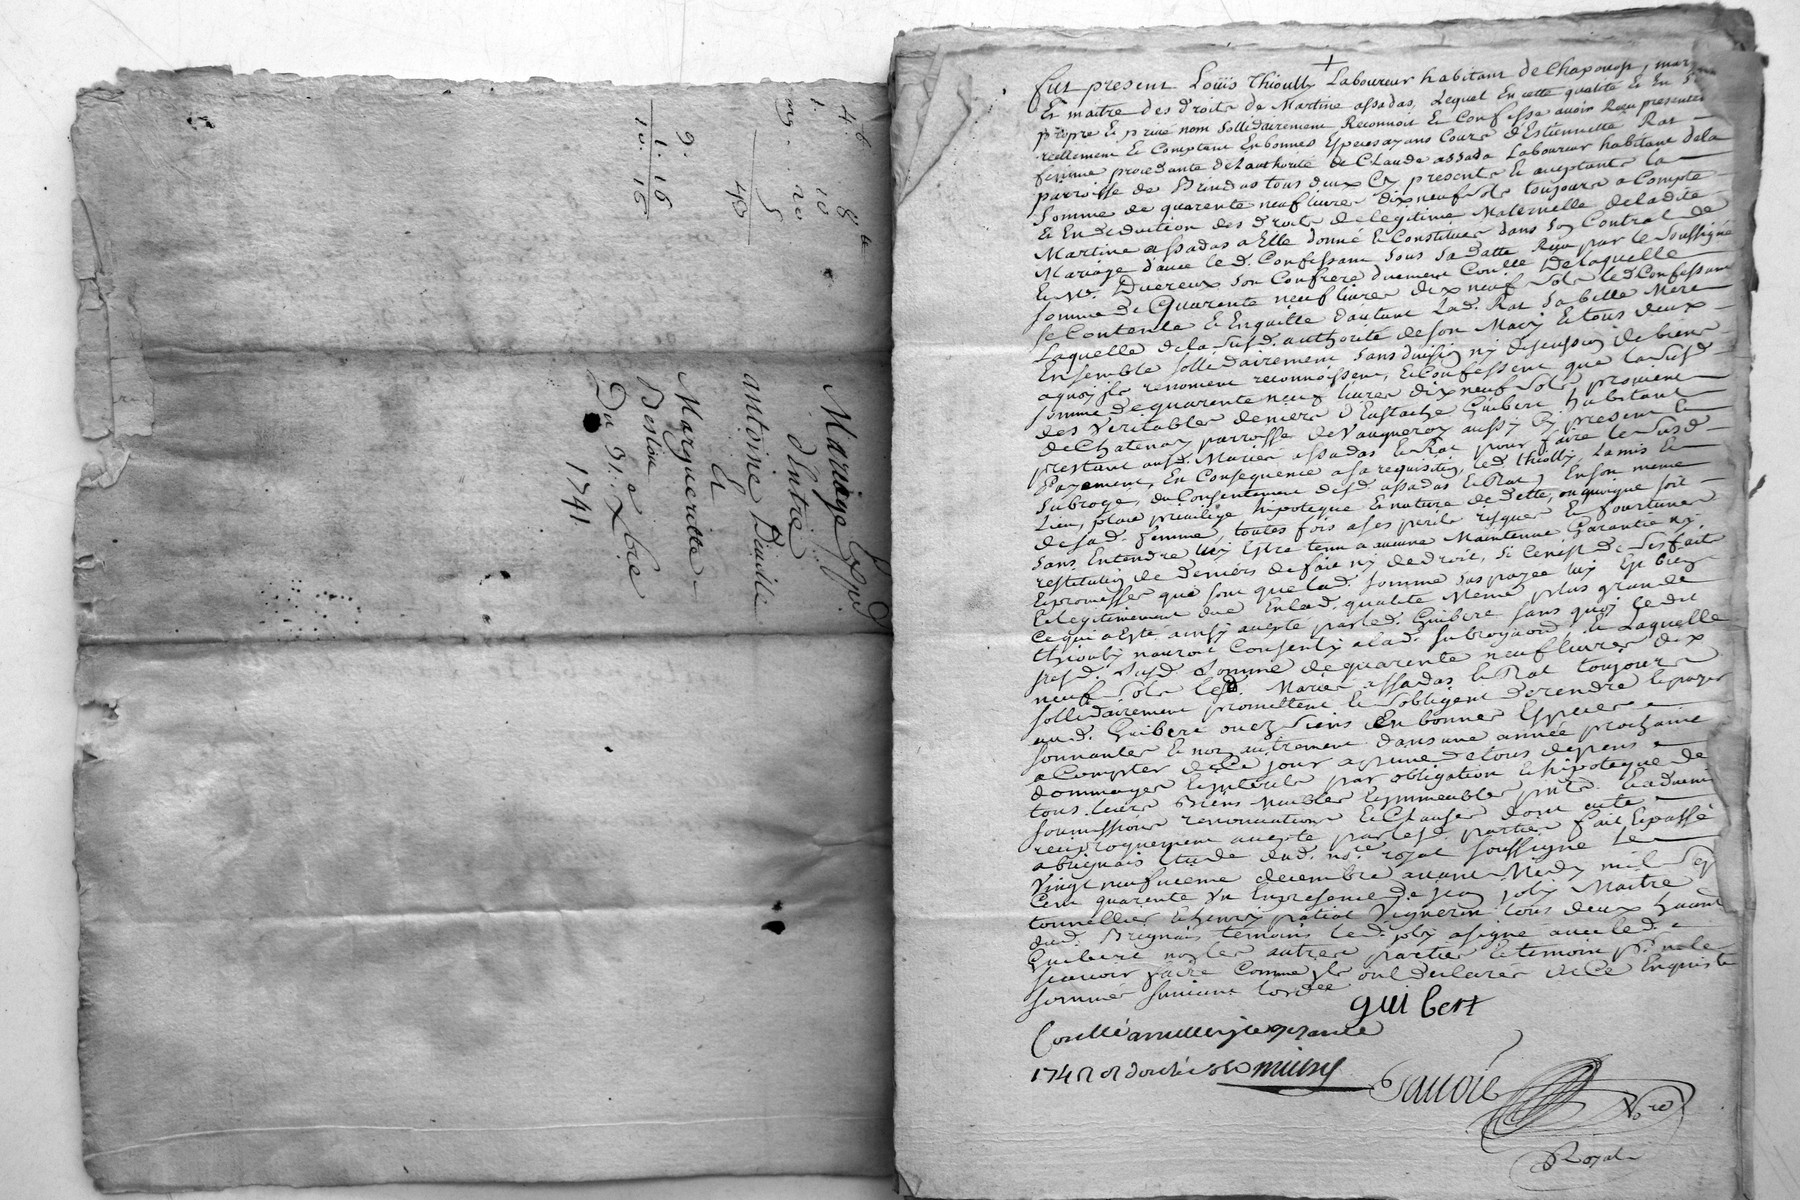 4.# 8.te
1. 10
10
5
40
9.
1. 16
10. 16
Mariage Exp.d
d'Entre
antoine
Et
Margueritte
Du 31. xbre
1741
+
fut present Loüis thioully Laboureur habitant de Chaponost, mary
Et maitre des droits de Martine assadas, Lequel En cette qualité Et En son
propre Et privé nom sollidairement Reconnoit Et Confesse avoir Receu presentement
reellement Et Comptant En bonnes Especes ayans Cours d'Estiennette Rat
femme procedante de L'authorité de Claude assada Laboureur habitant de la
parroisse de Brindas tous deux Cy presents Et aceptants La
somme de quarente neuf livres dix neuf sols toujours a Compte
Et En deduction des droits de Legitime Maternelle de ladite
Martine assadas a Elle donné Et Constitués dans son Contrat de
Mariage d'avec le d. Confessant sous sa datte Receu par le soussigné
Et Me. Duereux son Confrere duement Conllé De laquelle
somme de Quarente neuf livres dix neuf sols led. Confessant
se Contente Et En quitte d'autant Lad. Rat sa belle Mere
Laquelle de la susd. authorité de son Mary Et tous deux
Ensemble sollidairement sans division ny discussion de biens
a quoy ils renoncent reconnoissent, Et Confessent que la susd.
somme de quarente neuf livres dix neuf sols, provient
des Veritables deniers d'Eustache Guibert habitant
de Chatenay parroisse de Vaugneray aussy Cy present Et
prestant ausd. Mariés assadas Et Rat pour faire le susd.
Payement, En Consequence a sa requisition, led. thiolly, La mis Et
subrogé, du Consentement desd. assadas Et Rat, En son meme
Lieu, place privilege hipoteque Et nature de dette, ou quoyque soit
de sad. femme, toutes fois a ses perils risques Et fourtunes
sans Entendre luy Estre tenu a aucune Maintenue Garantie ny
restitution de deniers de fait ny de droit, si Ce n'est de ses faits
Et promesses que sont que lad. somme sas payée luy Est bien
Et legitimement due En lad. qualité Meme plus grande
Ce qui a Esté ainsy acepté par led. Guibert sans quoy le dit
thioully n'auroit Consenty a lad. subrogation, Et Laquelle
susd. somme de quarente neuf livres dix
neuf sols lesd. Mariés assadas Et Rat toujours
sollidairement promettent Et s'obligent de rendre Et payer
aud. Guibert ou ez siens En bonnes Especes
sonnantes Et non autrement dans une année prochaine
a Compter de Ce jour a peine de tous depens
dommages Et interets par obligation Et hipoteque de
tous leurs Biens Meubles Et immeubles
soumissions renonciations Et Clauses dont acte
reciproquement acepté par lesd. parties fait Et passé
a brignais Etude dud. nore. royal soussigné Le
Vingt neufvieme decembre avant Midy mil sept
Cent quarente un En presence de jean joly Maitre
tonnellier Et henry patiot Vigneron tous deux habitants
dud. Brignais temoins led. joly a signé avec led.
Guibert non les autres parties Et temoin p. ne le
sçavoir faire Comme ils ont declarés de Ce Enquis Et
sommés suivant l'ordce
guibert
Conllé a
1742
Savoie
Nore
Royal